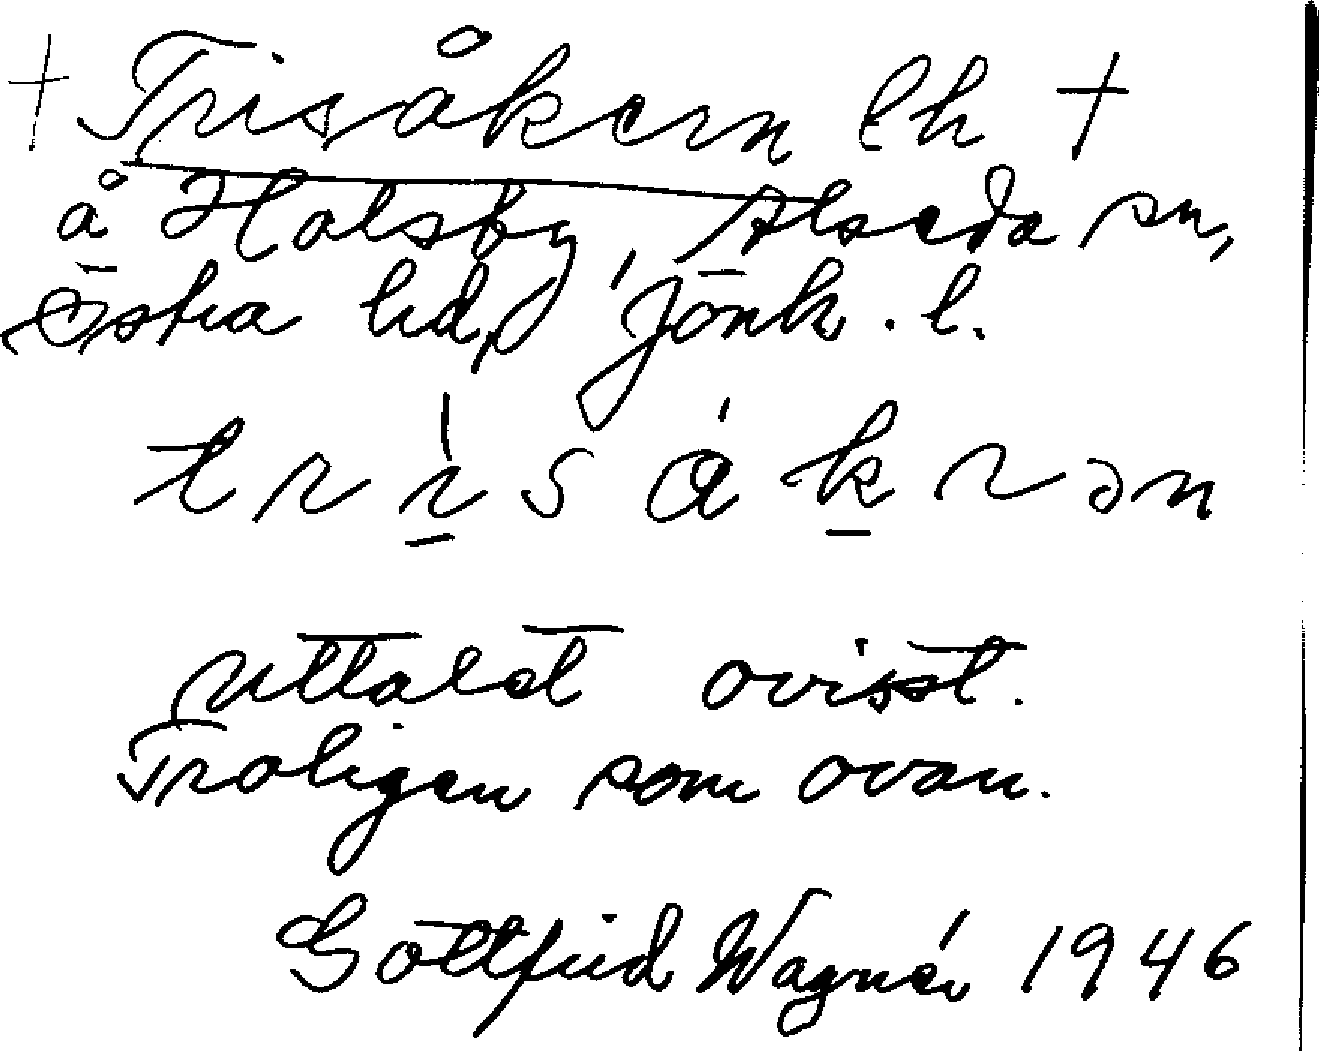 † Trisåkern lh †
å Holsby, Alseda sn,
Östra hd, Jönk. l.
trisåkrən
uttalet ovisst.
Troligen som ovan.
Gottfrid Wagnér 1946